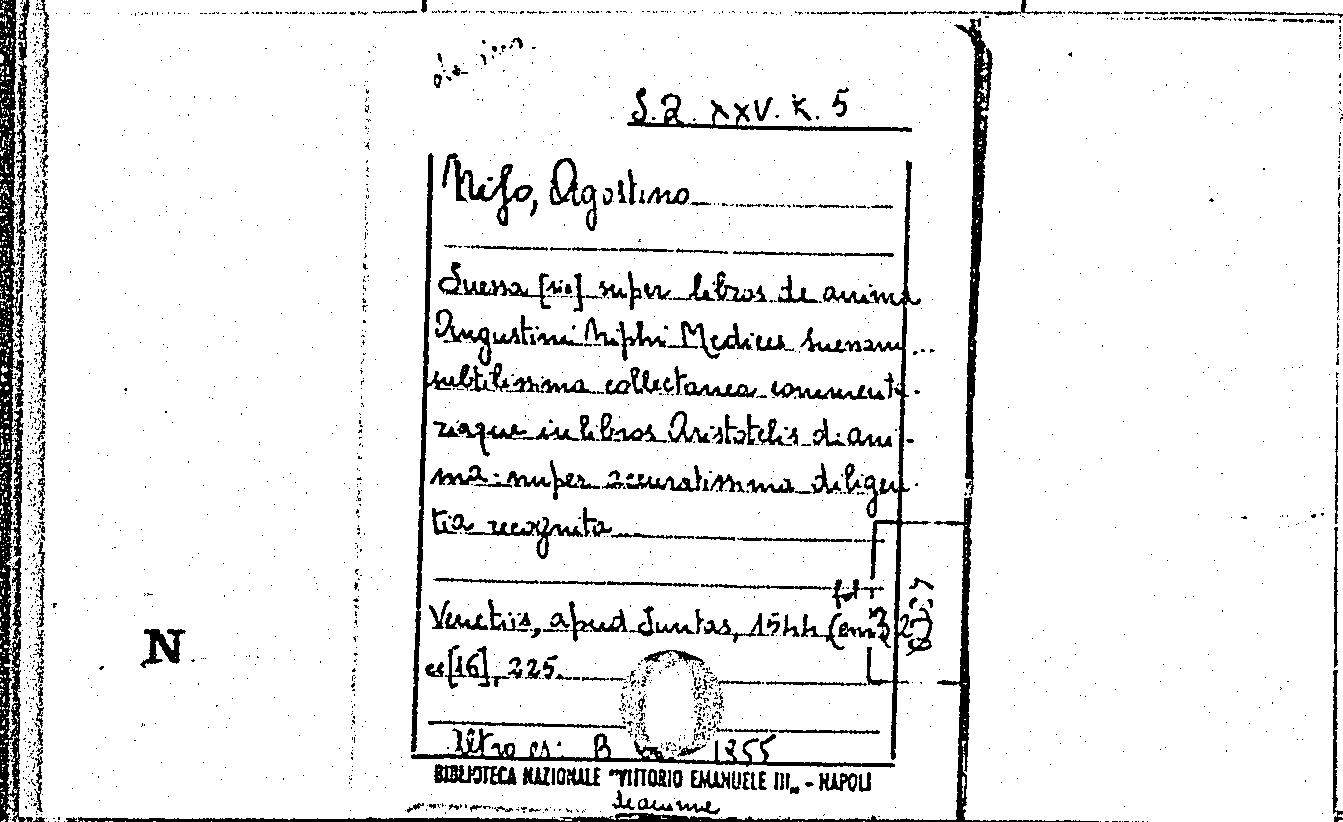 S.Q. XXV. K. 5
Nifo, Agostino
Suessa [sic] super libros de anima
Augustini Niphi Medices Suessani...
subtilissima collectanea commenta-
riaque in libros Aristotelis de ani-
ma: nuper accuratissima diligen-
tia recognita
Venetiis, apud Juntas, 1544
cc [16], 225.
N
Altro es: B 1355
BIBLIOTECA NAZIONALE "VITTORIO EMANUELE III„ - NAPOLI